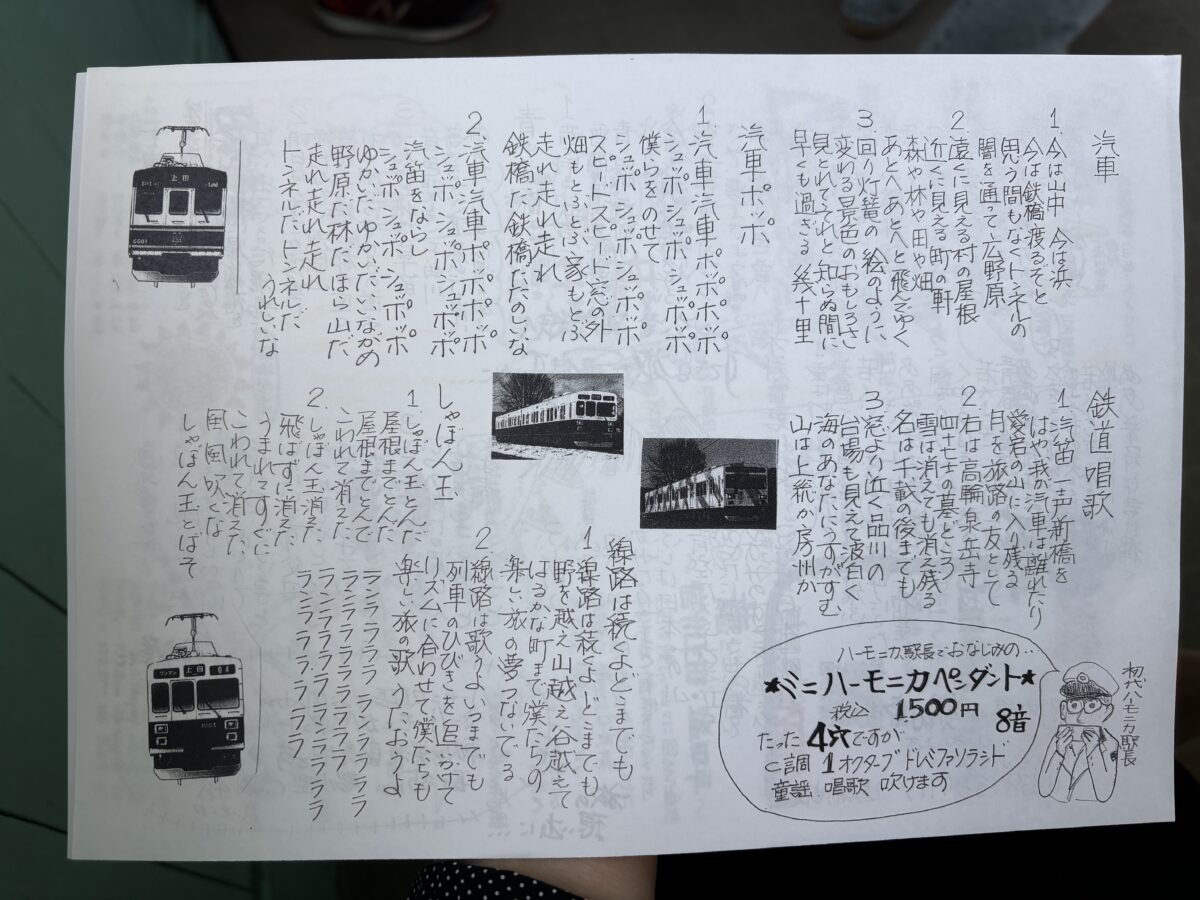 汽車
1. 今は山中 今は浜
今は鉄橋渡るぞと
思う間もなくトンネルの
闇を通って広野原
2. 遠くに見える村の屋根
近くに見える町の軒
森や林や田や畑
あとへあとへと飛んでゆく
3 回り灯篭の絵のように
変わる景色のおもしろさ
見とれてそれと知らぬ間に
早くも過ぎる 幾十里
汽車ポッポ
1. 汽車汽車ポッポポッポ
シュッポシュッポシュッポッポ
僕らをのせて
シュッポシュッポシュッポッポ
スピードスピード窓の外
畑もとぶとぶ家もとぶ
走れ走れ走れ
鉄橋だ鉄橋だたのしいな
2. 汽車汽車ポッポポッポ
シュッポシュッポシュッポッポ
汽笛をならし
シュッポシュッポシュッポッポ
ゆかいだゆかいだいいながめ
野原だ林だほら山だ
走れ走れ走れ
トンネルだトンネルだ
うれしいな
上田
6001
鉄道唱歌
1. 汽笛一声新橋を
はや我が汽車は離れたり
愛宕の山に入り残る
月を旅路の友として
2 右は高輪泉岳寺
四十七士の墓どころ
雪は消えても消え残る
名は千載の後までも
3 窓より近く品川の
台場も見えて波白く
海のあなたにうすがすむ
山は上総か房州か
しゃぼん玉
1. しゃぼん玉とんだ
屋根までとんだ
屋根までとんで
こわれて消えた
2. しゃぼん玉消えた
飛ばずに消えた
うまれてすぐに
こわれて消えた
風風吹くな
しゃぼん玉とばそ
線路は続くよどこまでも
1 線路は続くよどこまでも
野を越え山越え谷越えて
はるかな町まで僕たちの
楽しい旅の夢つないでる
2. 線路は歌うよいつまでも
列車のひびきを追いかけて
リズムに合わせて僕たちも
楽しい旅の歌うたおうよ
ワンマン
上田
64
1004
ハーモニカ駅長でおなじみの‥
★ミニハーモニカペンダント★
税込 1,500円
8音
たった4穴ですが
C調 1オクターブ ドレミファソラシド
童謡 唱歌 吹けます
初代ハーモニカ駅長